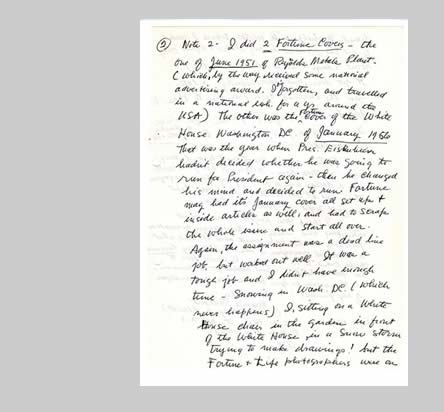 ② Note 2. I did 2 Fortune Covers – the
one of June 1951 of Reynolds Metals Plant.
(which, by the way received some national
advertising award. I forgotten, and travelled
in a national exh. for a yr. around the
USA) The other was the Fortune cover of the White
House Washington DC of January 1956
That was the year when Pres. Eisenhower
hadn't decided whether he was going to
run for President again – then he changed
his mind and decided to run. Fortune
mag had its January cover all set up +
inside articles as well, and had to scrap
the whole issue and start all over.
Again, the assignment was a dead line
job, but worked out well. It was a
tough job and I didn't have enough
time – Snowing in Wash. DC (which
never happens) I, sitting on a White
House chair in the garden in front
of the White House, in a snow storm
trying to make drawings! but the
Fortune + Life photographers were on